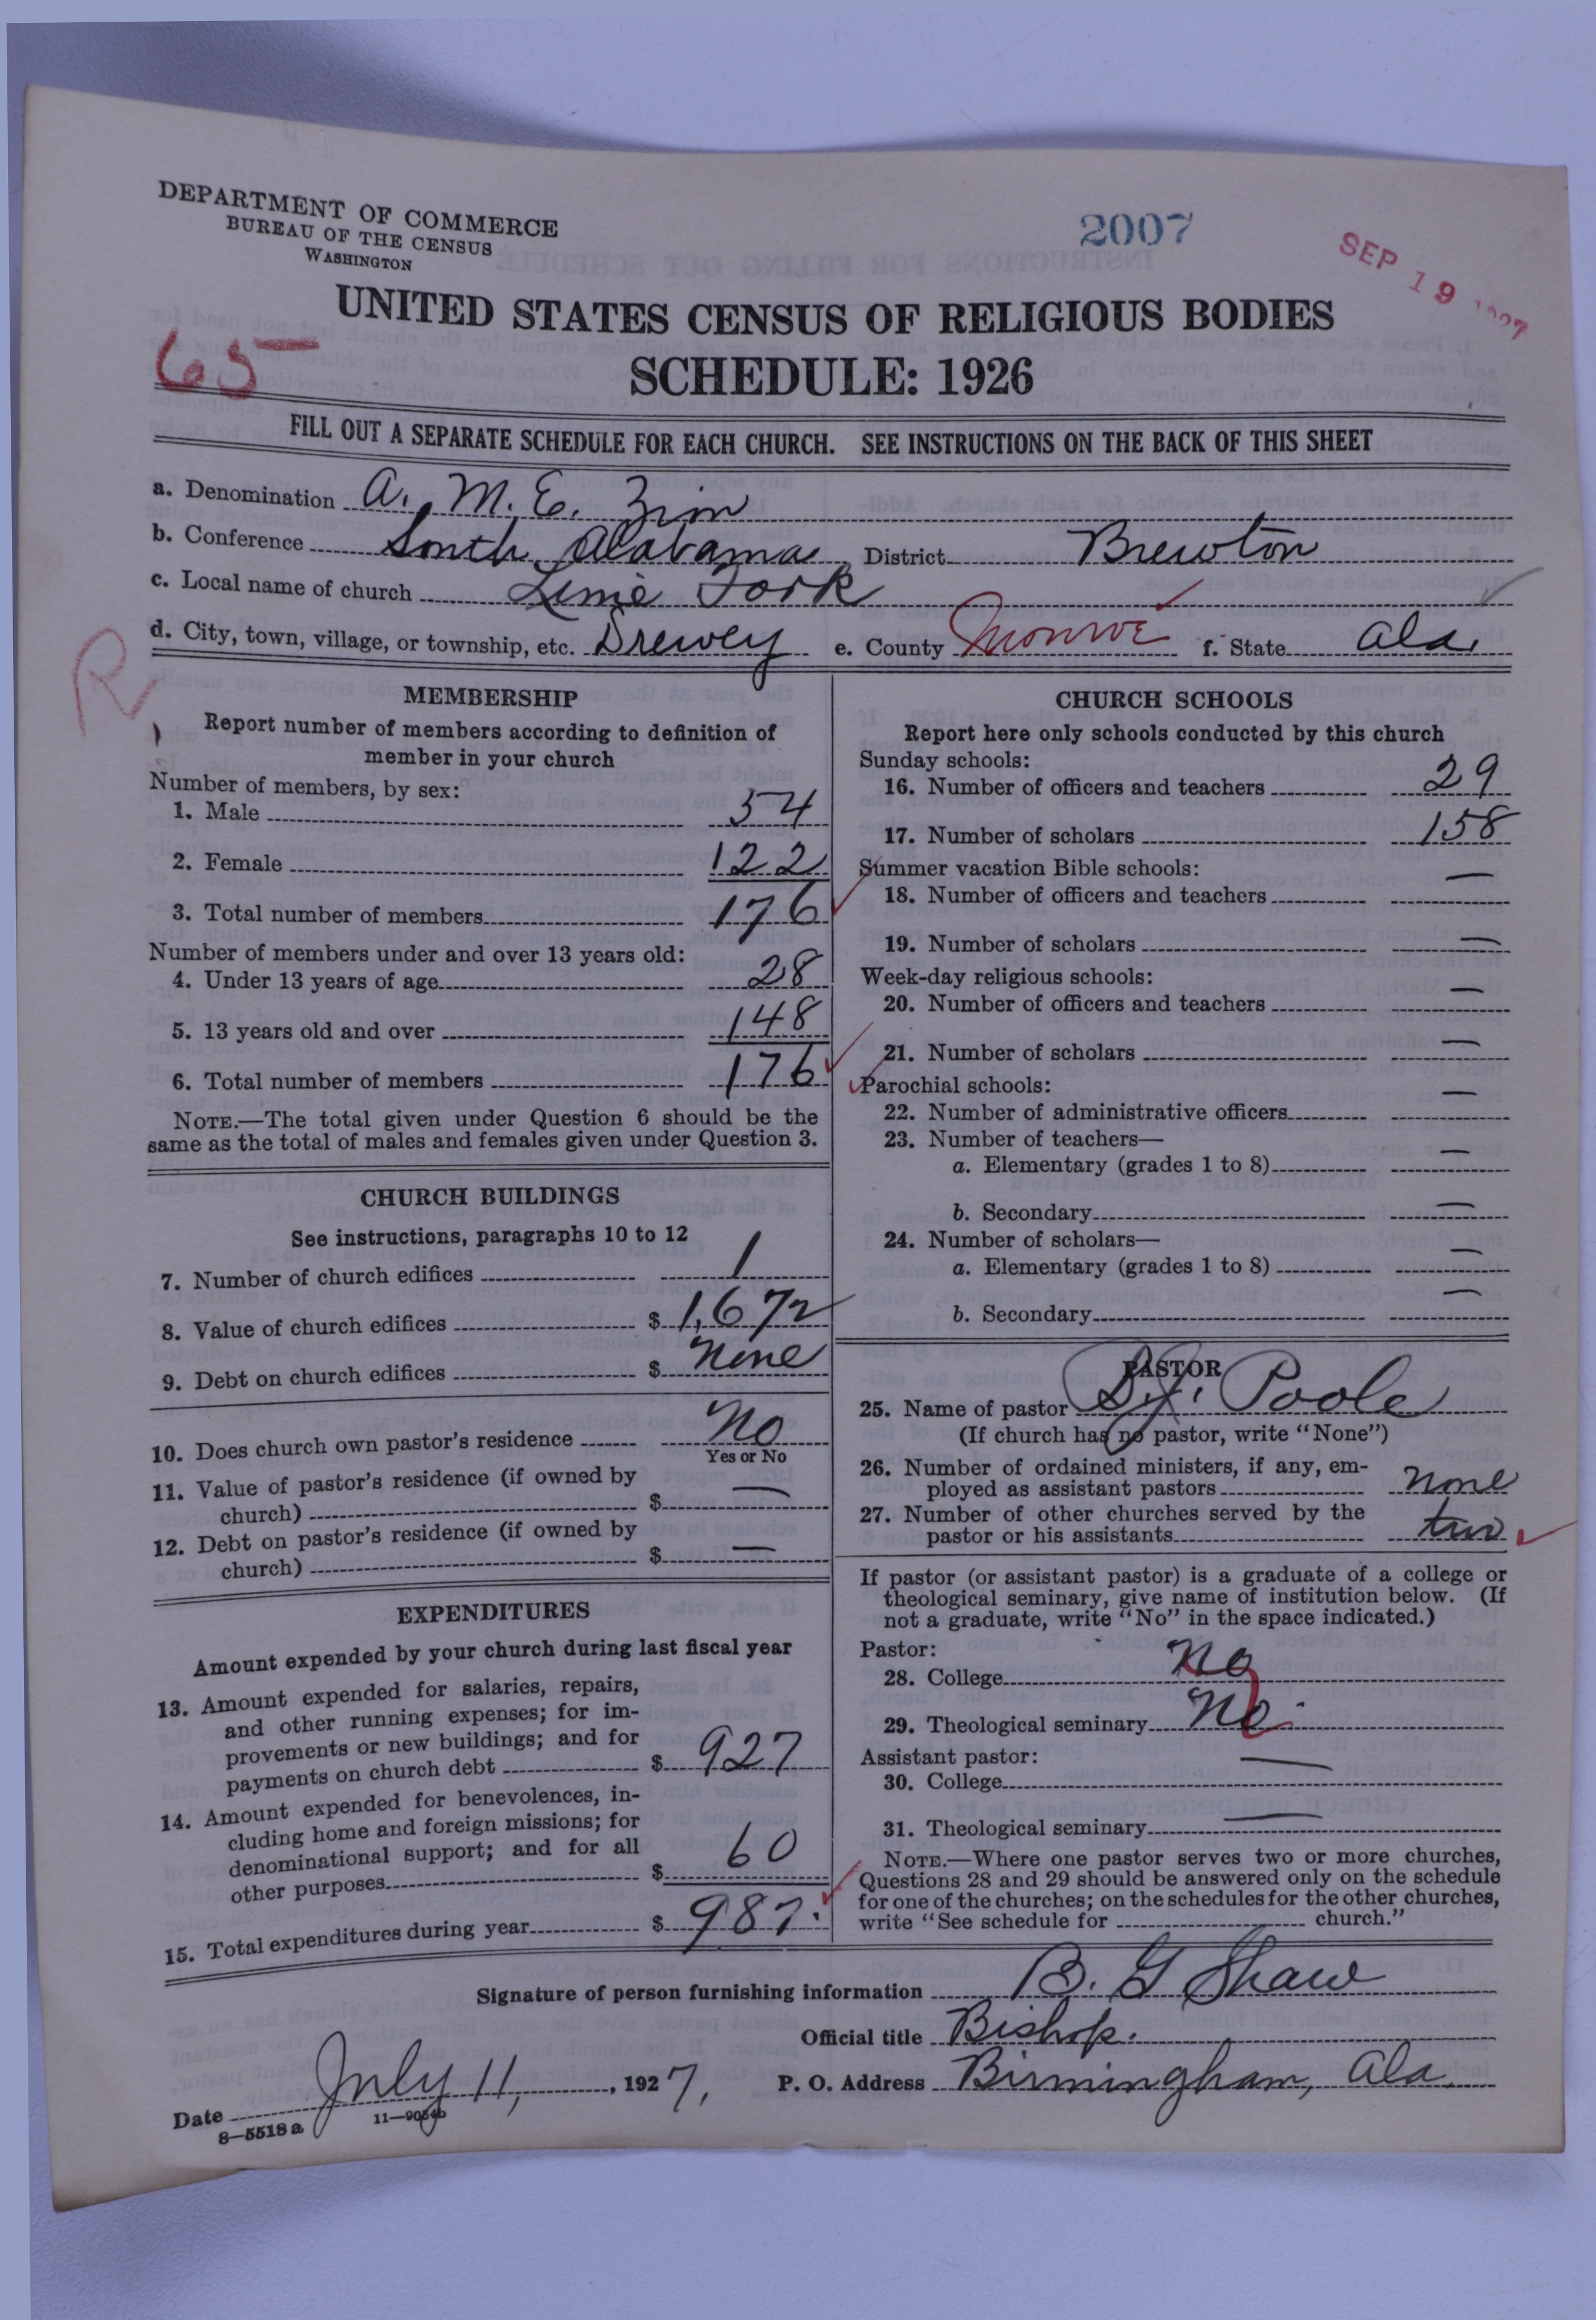 DEPARTMENT OF COMMERCE
BUREAU OF THE CENSUS
WASHINGTON
2007
SEP 19 1927
UNITED STATES CENSUS OF RELIGIOUS BODIES
65
SCHEDULE: 1926
FILL OUT A SEPARATE SCHEDULE FOR EACH CHURCH. SEE INSTRUCTIONS ON THE BACK OF THIS SHEET
a. Denomination A. M. E. Zion
b. Conference South Alabama District Brewton
c. Local name of church Lime Fork
d. City, town, village, or township, etc. Drewey e. County Monroe f. State Ala.
R
MEMBERSHIP
Report number of members according to definition of
member in your church
Number of members, by sex:
1. Male 54
2. Female 122
3. Total number of members 176
Number of members under and over 13 years old:
4. Under 13 years of age 28
5. 13 years old and over 148
6. Total number of members 176
NOTE.—The total given under Question 6 should be the
same as the total of males and females given under Question 3.
CHURCH BUILDINGS
See instructions, paragraphs 10 to 12
7. Number of church edifices 1
8. Value of church edifices $ 1,672
9. Debt on church edifices $ None
10. Does church own pastor's residence No
Yes or No
11. Value of pastor's residence (if owned by
church) $ —
12. Debt on pastor's residence (if owned by
church) $ —
EXPENDITURES
Amount expended by your church during last fiscal year
13. Amount expended for salaries, repairs,
and other running expenses; for im-
provements or new buildings; and for
payments on church debt $ 927
14. Amount expended for benevolences, in-
cluding home and foreign missions; for
denominational support; and for all
other purposes $ 60
15. Total expenditures during year $ 987.
CHURCH SCHOOLS
Report here only schools conducted by this church
Sunday schools:
16. Number of officers and teachers 29
17. Number of scholars 158
Summer vacation Bible schools:
18. Number of officers and teachers —
19. Number of scholars —
Week-day religious schools:
20. Number of officers and teachers —
21. Number of scholars —
Parochial schools:
22. Number of administrative officers —
23. Number of teachers—
a. Elementary (grades 1 to 8) —
b. Secondary —
24. Number of scholars—
a. Elementary (grades 1 to 8) —
b. Secondary —
PASTOR
25. Name of pastor Poole
(If church has no pastor, write "None")
26. Number of ordained ministers, if any, em-
ployed as assistant pastors none
27. Number of other churches served by the
pastor or his assistants two
If pastor (or assistant pastor) is a graduate of a college or
theological seminary, give name of institution below. (If
not a graduate, write "No" in the space indicated.)
Pastor:
28. College No
29. Theological seminary No.
Assistant pastor:
30. College —
31. Theological seminary —
NOTE.—Where one pastor serves two or more churches,
Questions 28 and 29 should be answered only on the schedule
for one of the churches; on the schedules for the other churches,
write "See schedule for church."
Signature of person furnishing information B. G Shaw
Official title Bishop.
Date July 11, 1927, P. O. Address Birmingham, Ala.
8—5518a 11—9054b